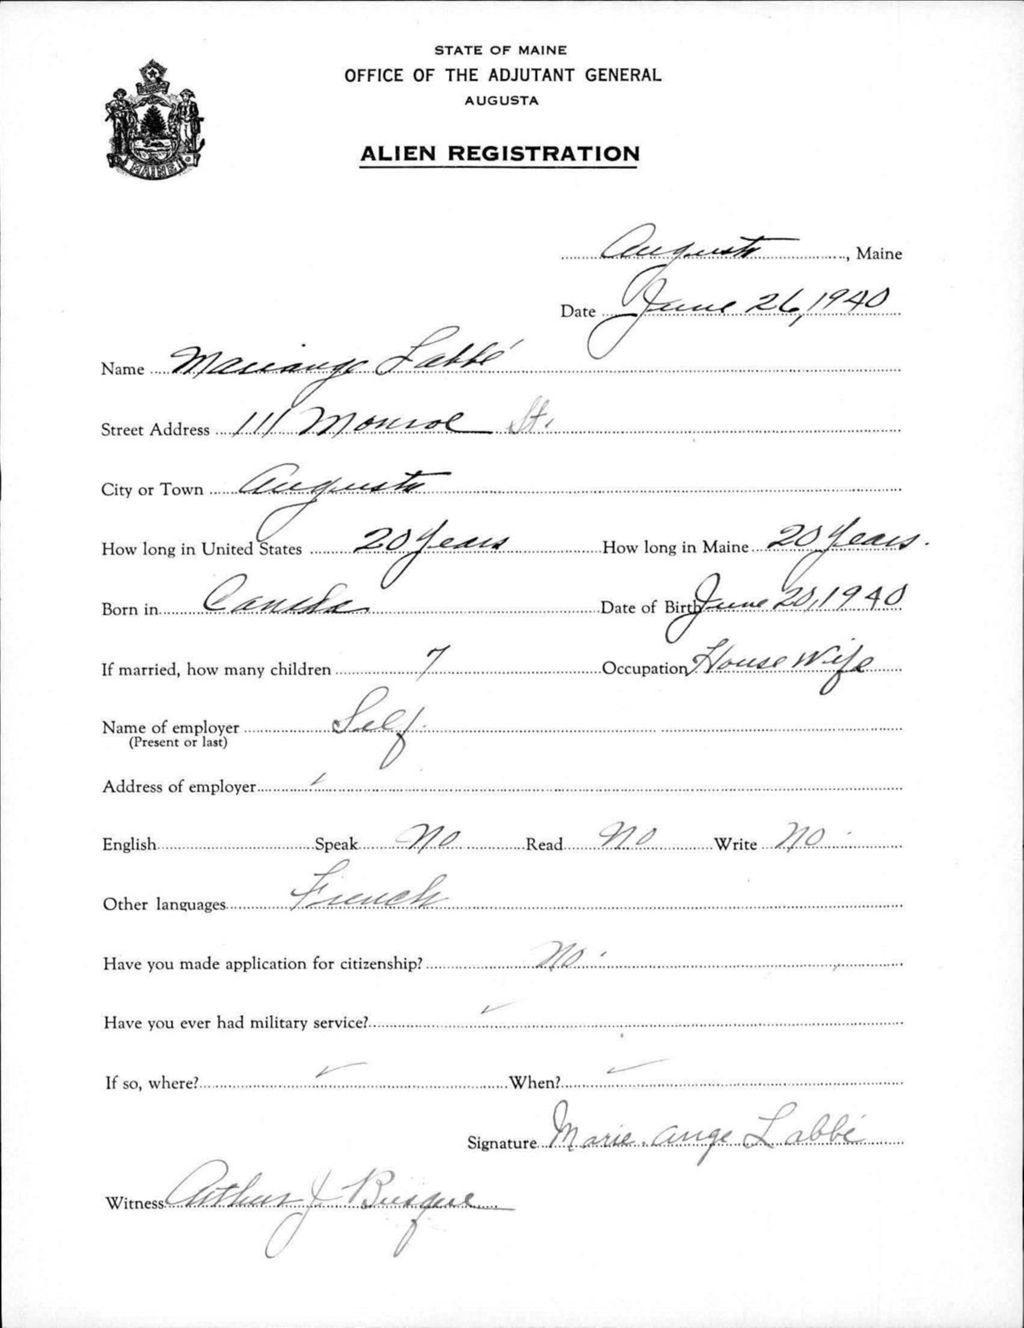 STATE OF MAINE
OFFICE OF THE ADJUTANT GENERAL
AUGUSTA
ALIEN REGISTRATION
MAINE
Augusta, Maine
Date June 26, 1940
Name Marieange Labbé
Street Address 111 Monroe St.
City or Town Augusta
How long in United States 20 Years How long in Maine 20 Years.
Born in Canada Date of Birth June 20, 1940
If married, how many children 7 Occupation House Wife
Name of employer Self.
(Present or last)
Address of employer
English Speak No Read No Write No.
Other languages French
Have you made application for citizenship? No.
Have you ever had military service?
If so, where? When?
Signature Marie. Ange Labbé
Witness Arthur J Busque